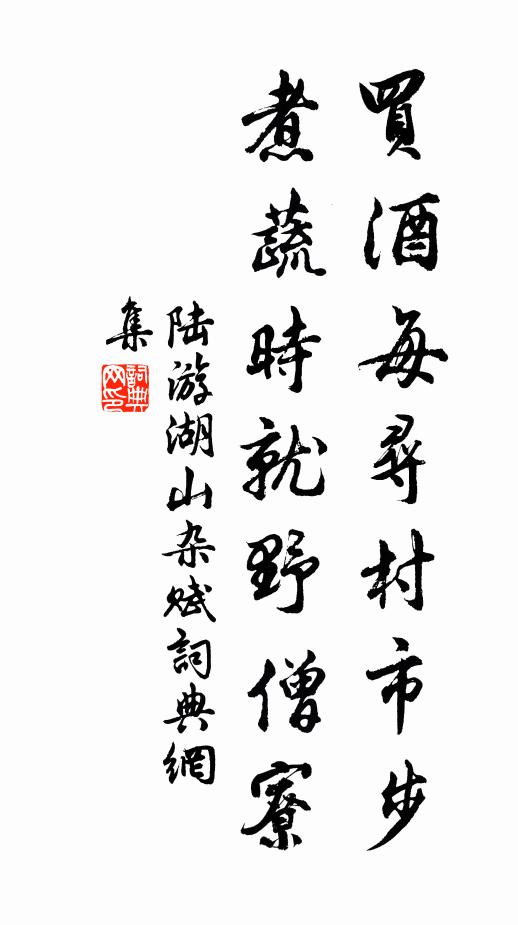 買酒每尋村市步
煮蔬時就野僧寮
陆游湖山杂赋詞典網
集
詞典网印